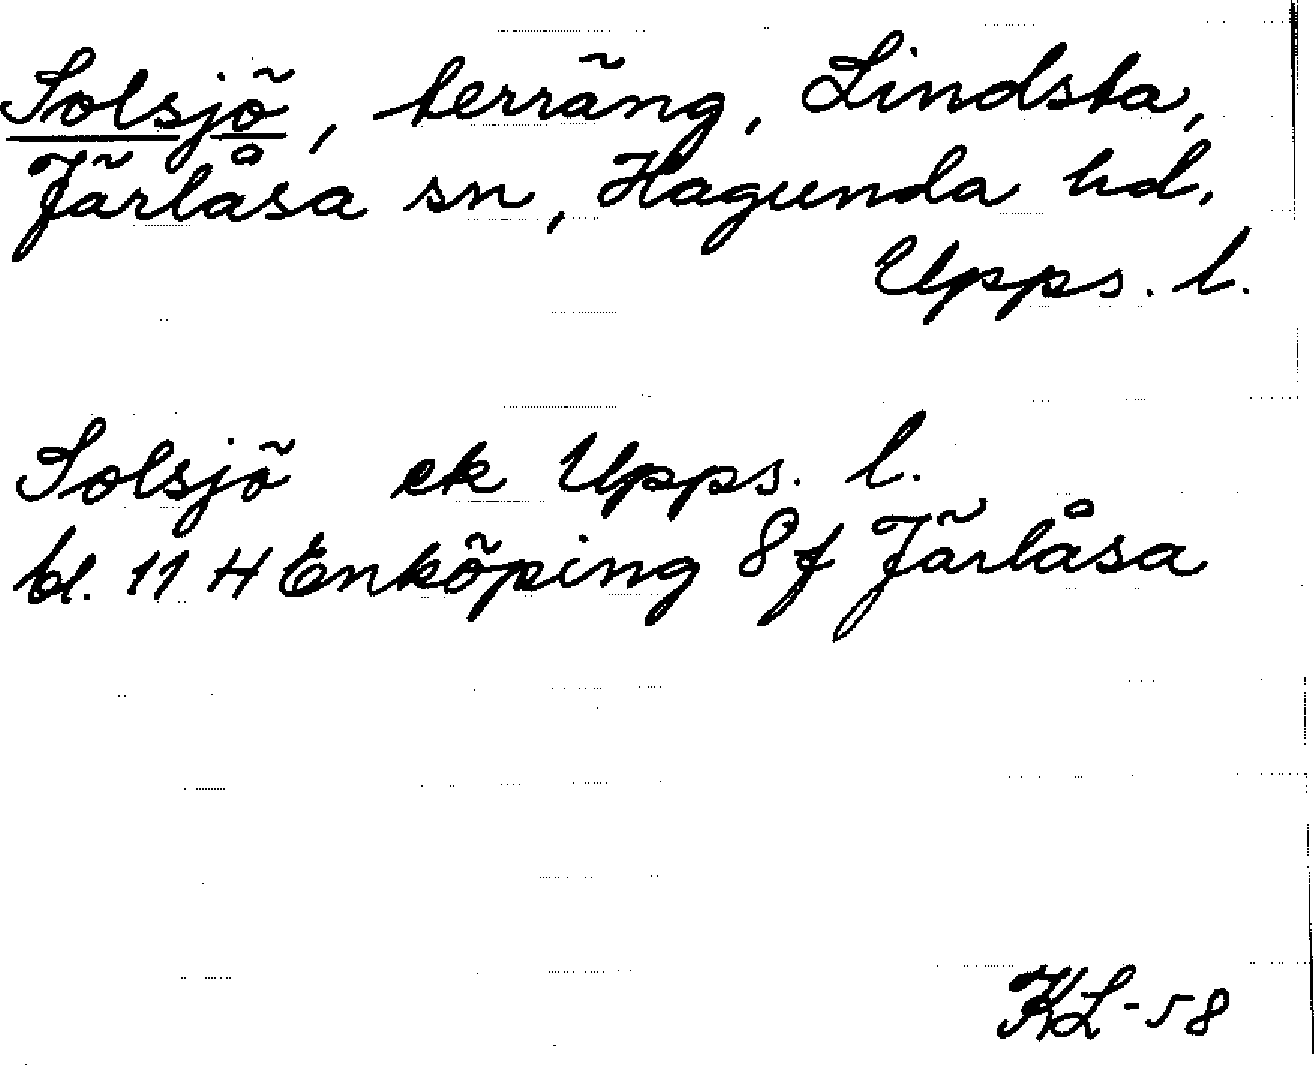 Solsjö, terräng, Lindsta,
Järlåsa sn, Hagunda hd.
Upps. l.
Solsjö ek Upps. l.
bl. 11 H Enköping 8f Järlåsa
KL-58